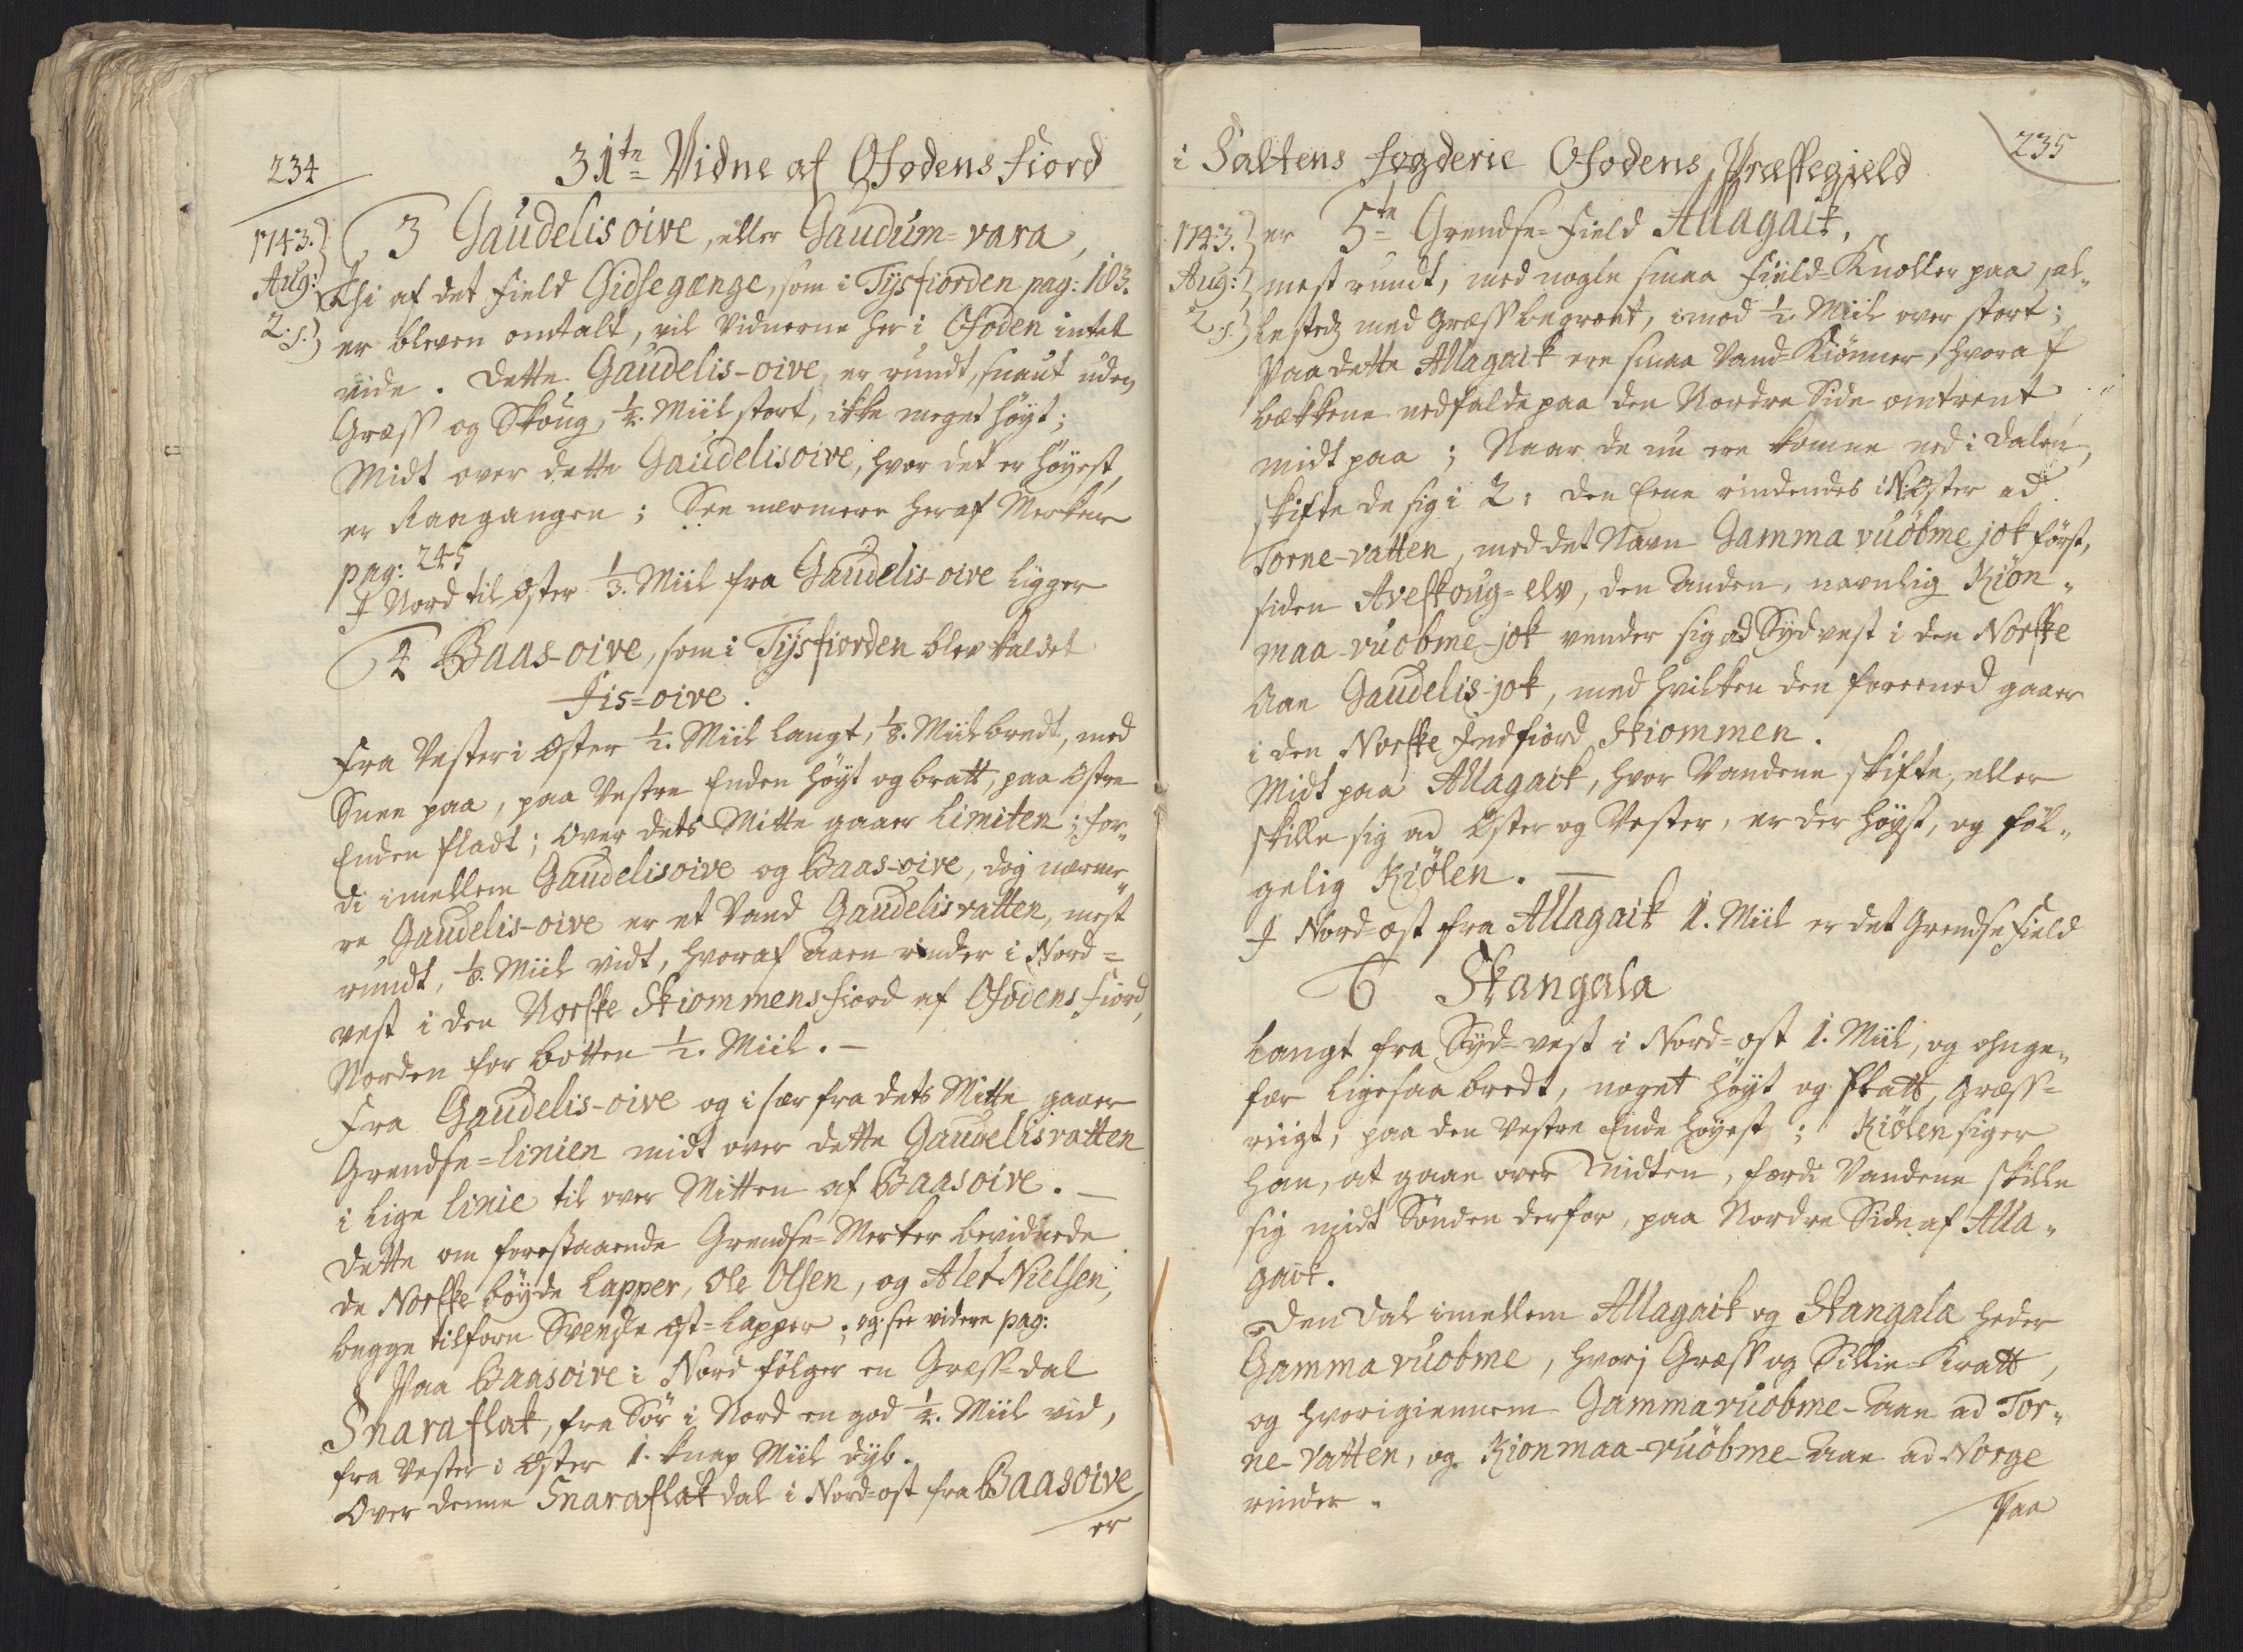 234
31te Vidne af Ofodens Fiord
1743.
Aug:
2. s.
3 Gaudelis oive, eller Gaudum=vara,
Thi af det Field Gidsegænge, som i Tysfiorden pag: 183.
er bleven omtalt, vil Vidnerne her i Ofoden intet
vide. Dette Gaudelis-oive, er rundt, snaut uden
Græss og Skoug, ½. Miil stort, ikke meget høyt;
Midt over dette Gaudelisoive, hvor det er høyest,
er Raagangen; See nærmere heraf Merker
pag: 245
I Nord til Oster ⅓. Miil fra Gaudelis-oive ligger
4 Baas-oive, som i Tysfiorden blev kaldet
Jis=oive.
Fra Vester i Oster ½. Miil langt, ⅛. Miil bredt, med
Snee paa, paa Vestre Enden høyt og bratt, paa Ostre
Enden fladt; Over dets Mitte gaaer Limiten; for-
di imellem Gaudelisoive og Baas-oive, dog nærme-
re Gaudelis-oive er et Vand Gaudelisvatten, mest
rundt, ⅛. Miil vidt, hvoraf Aaen rinder i Nord=
vest i den Norske Skiommensfiord af Ofodens Fiord,
Norden for botten ½. Miil. —
Fra Gaudelis-oive og i sær fra dets Mitte gaaer
Grendse=Linien midt over dette Gaudelisvatten
i lige Linie til over Mitten af Baasoive. —
Dette om forestaaende Grendse=Merker bevidnede
de Norske bøyde Lapper, Ole Olsen, og Alet Nielsen,
begge tilforn Svenske Ost=Lapper; og see videre pag:
Paa Baasoive i Nord følger en Græss=dal
Snaraflak, fra Sør i Nord en god ½. Miil vid,
fra Vester i Oster 1. knap Miil dyb.
Over denne Snaraflak dal i Nord=ost fra Baasoive
er
i Saltens Fogderie Ofodens Præstegield
235
1743.
Aug:
2. s.
er 5te Grendse=Field Allagaik,
mest rundt, med nogle smaa Field=Knoller paa, al-
lesteds med Græss begroet, imod ½. Miil over stort;
Paa dette Allagaik ere smaa Vand=Kiønner, hvoraf
bækkene nedfalde paa den Nordre Side omtrent
midt paa; Naar de nu ere komne ned i Dalen,
skifte de sig i 2: den Eene rindendes i N: Oster ad
Torne-vatten, med det Navn Gamma vuobme jok først,
siden Aveskoug=elv, den Anden, navnlig Kion-
maa-vuobme-jok vender sig ad Sydvest i den Norske
Aae Gaudelis-jok, med hvilken den foreened gaaer
i den Norske Indfiord Skiommen.
Midt paa Allagaik, hvor Vandene skifte, eller
skille sig ad Oster og Vester, er der høyst, og føl-
gelig Kiølen. —
I Nord-ost fra Allagaik 1. Miil er det Grendse Field
6 Skangala
Langt fra Syd=vest i Nord=ost 1. Miil, og ohnge-
fær ligesaa bredt, noget høyt og flatt, Græss=
riigt, paa den Vestre Ende høyest; Kiølen siger
han, at gaae over Midten, fordi Vandene skille
sig midt Sønden derfor, paa Nordre Side af Alla-
gaik.
Den Dal imellem Allagaik og Skangala heder
Gamma vuobme, hvorj Græss og Sillie=Kratt,
og hvorigiennem Gammavuobme-Aae ad Tor-
ne-vatten, og Kionmaa-vuobme-Aae ad Norge
rinder.
Paa